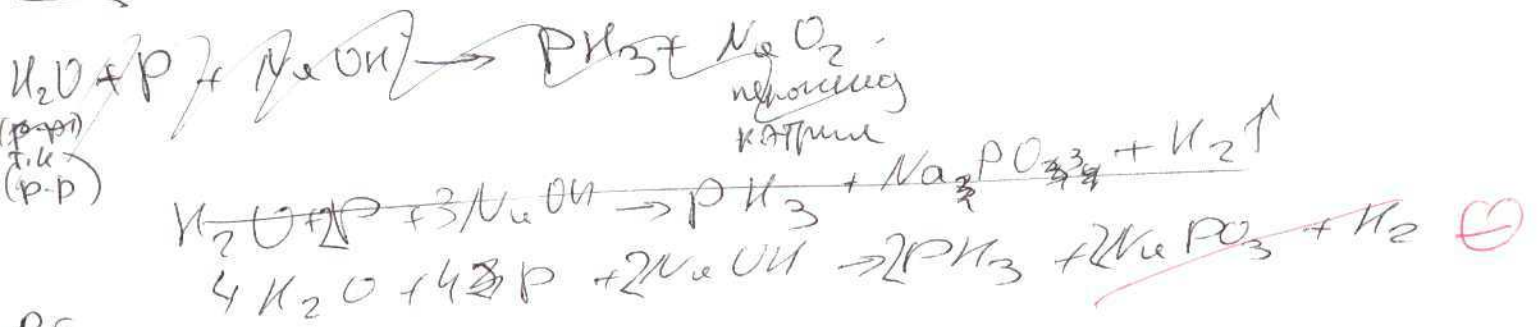 H₂O + P + NaOH → PH₃ + NaO₂
пероксид
натрия
т.к
(р-р)
H₂O + 2P + 3NaOH → PH₃ + Na₃PO₃ + H₂↑
4H₂O + 4P + 2NaOH → 2PH₃ + 2NaPO₃ + H₂